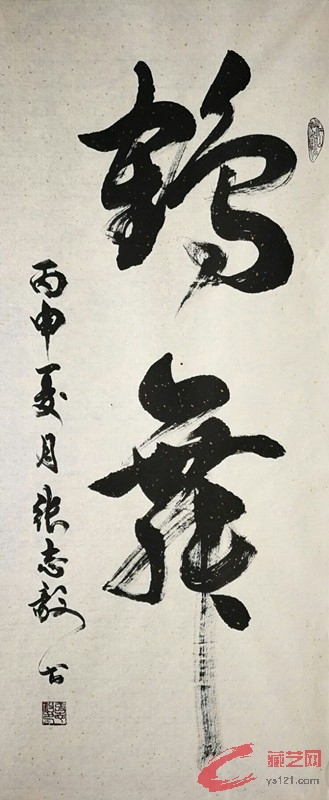 鹤舞
丙申夏月张志毅书
藏艺网
ys121.com